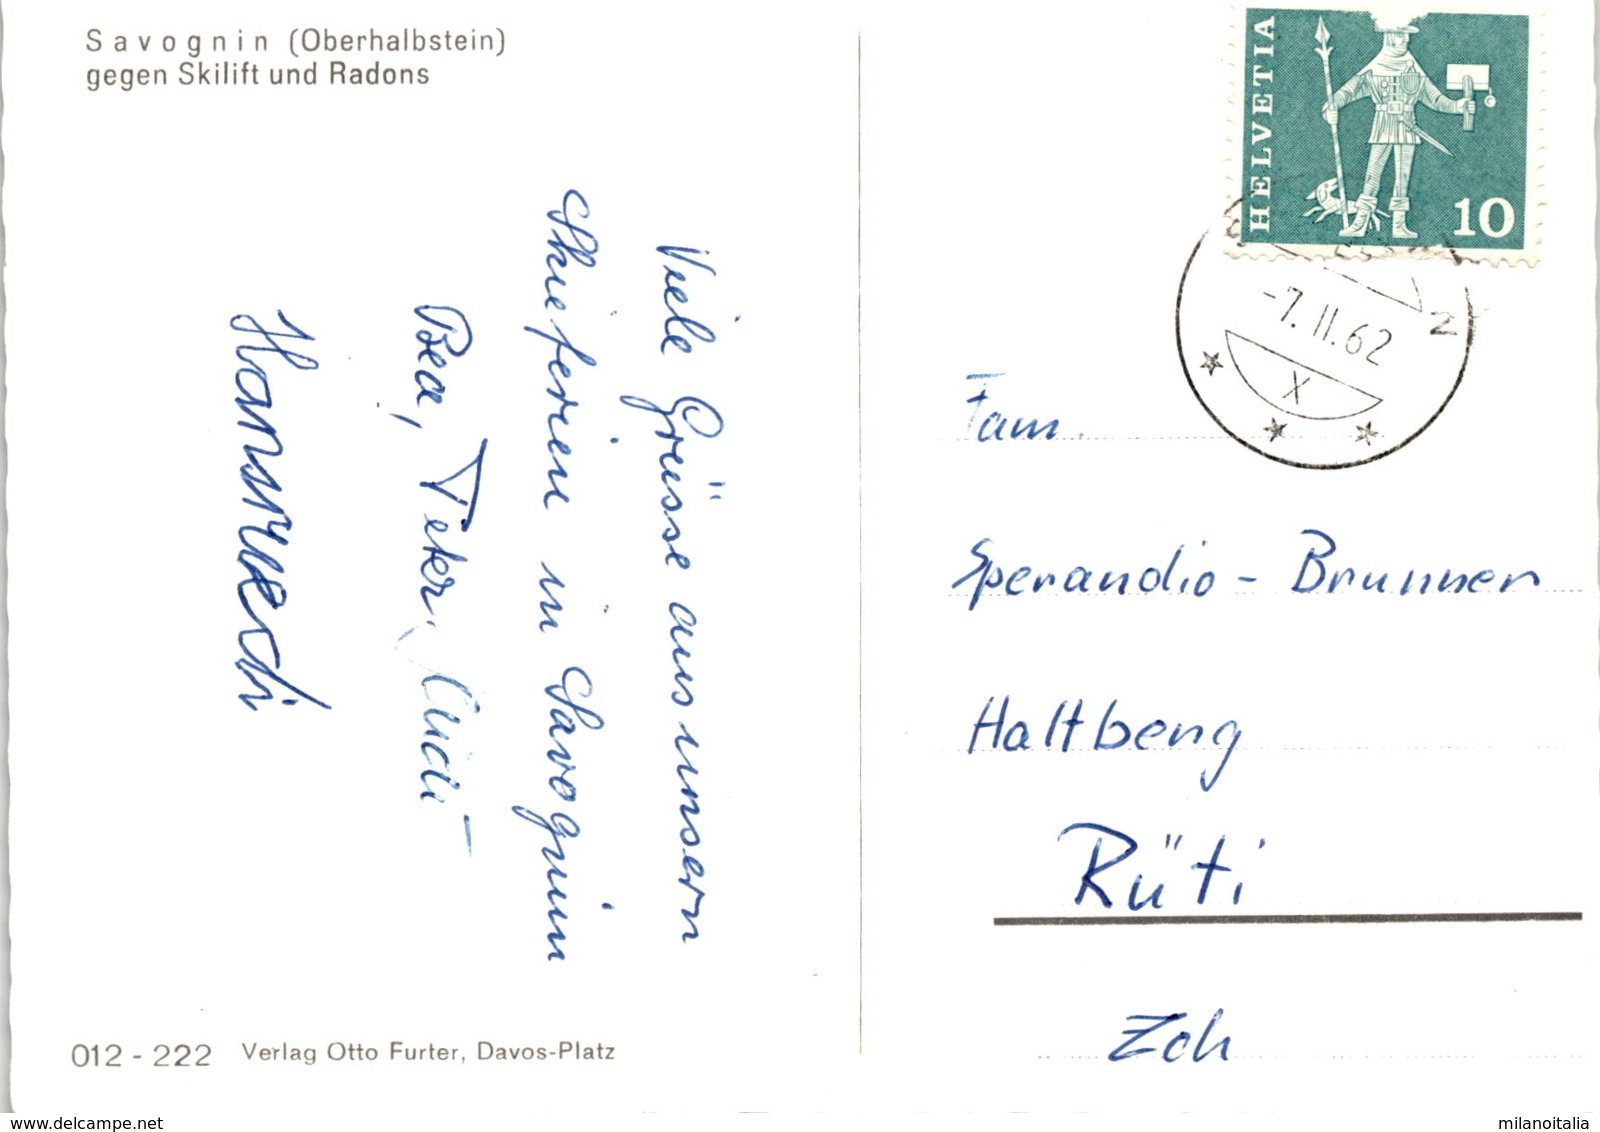 Savognin (Oberhalbstein)
gegen Skilift und Radons
Viele Grüsse aus unsern
Skieferien in Savognin
Bea, Peter, Ruedi
Hansruedi
012 - 222 Verlag Otto Furter, Davos-Platz
HELVETIA
10
-7.II.62
X
Fam.
Sperandio - Brunner
Haltberg
Rüti
Zch
www.delcampe.net
milanoitalia